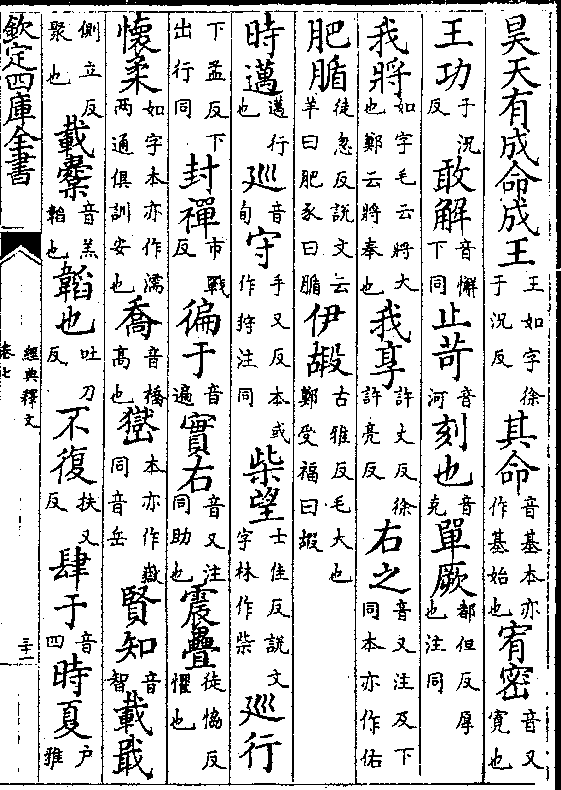 昊天有成命成王王如字徐于况反其命音基本亦作基始也宥密音又寛也
王功子况反敢解音懈下同止苛音河刻也音克單厥都但反厚也注同
我將如字毛云將大也鄭云將奉也我享許丈反徐許亮反右之音又注及下同本亦作佑
肥腯徒忽反說文云羊曰肥豕曰腯伊嘏古雅反毛大也鄭受福曰嘏
時邁邁行也巡音旬守手又反本或作狩注同柴望士佳反說文字林作柴巡行
下孟反下出行同封禪市戰反徧于音遍實右音又注同助也震疊徒恊反懼也
懷柔如字本亦作濡两通俱訓安也喬音橋高也嶽本亦作嶽同音岳賢知音智載戢
側立反聚也載櫜音羔韜也韜也吐刀反不復扶又反肆于音四時夏户雅
欽定四庫全書
經典釋文
卷七
三十一